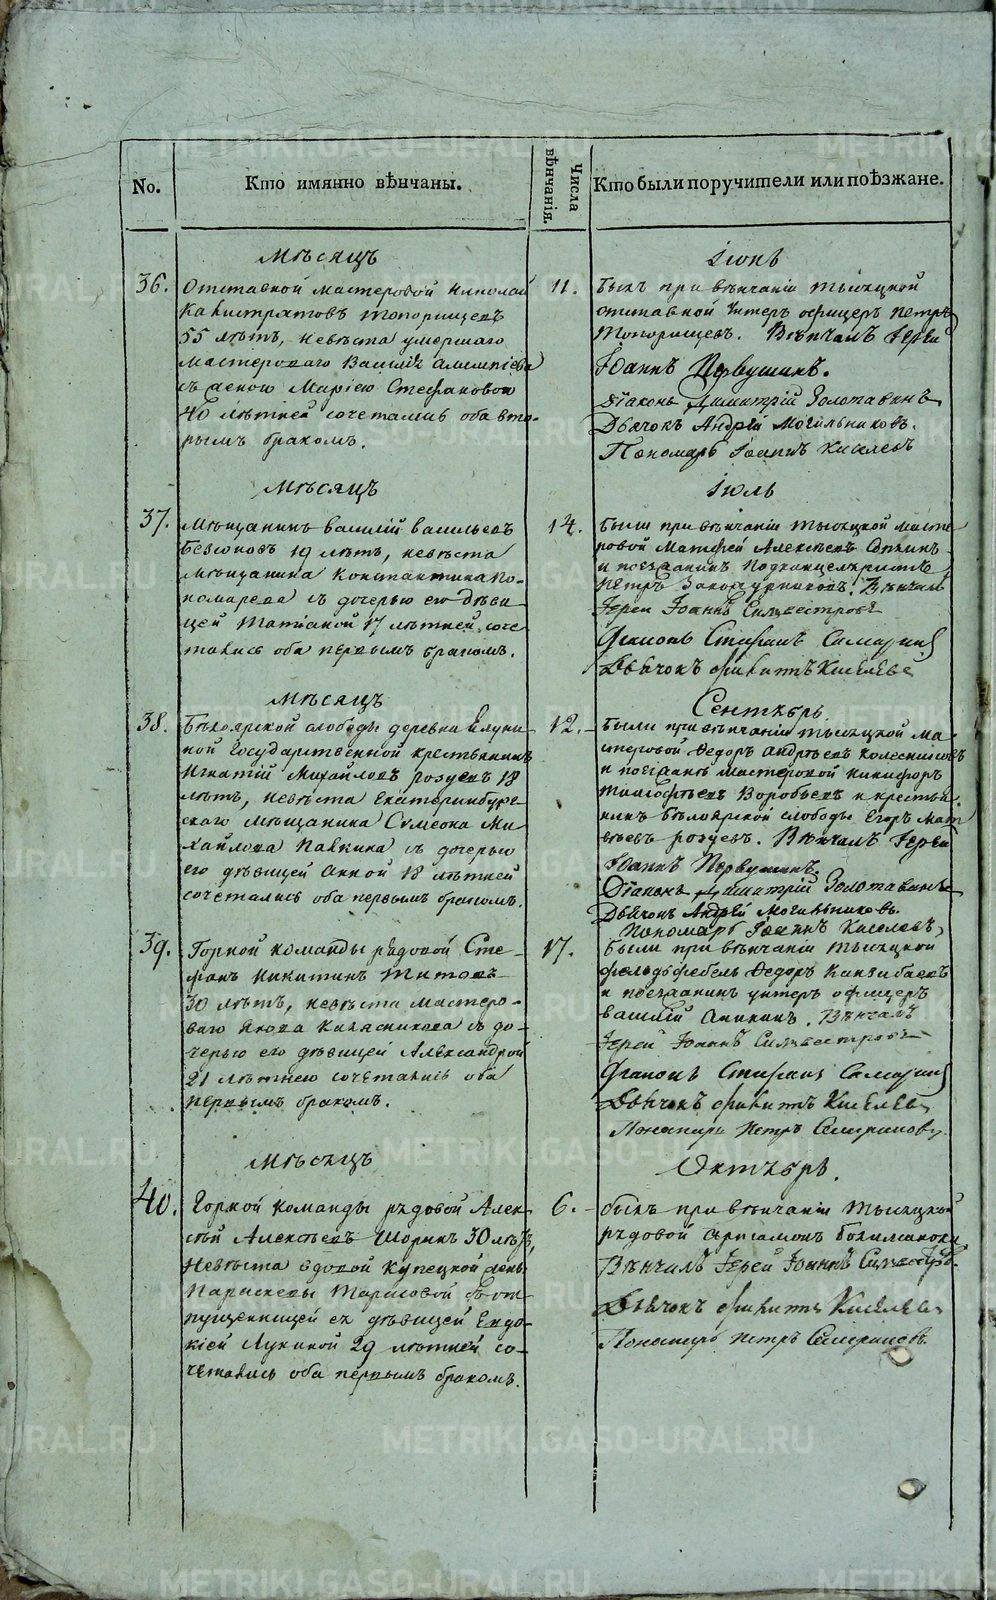 No.
Кто имянно вѣнчаны.
Числа вѣнчанія.
Кто были поручители или поѣзжане.
Мѣсяцъ
36. Отставной мастеровой Николай
Калистратовъ Топорищевъ
55 лѣтъ, невѣста умершаго
мастероваго Василія
съ женою Маріею Стефановою
40 лѣтней сочетались оба вто-
рымъ бракомъ.
11.
Іюнь
Былъ при вѣнчаніи тысяцкой
отставной Унтеръ офицеръ Петръ
Топорищевъ. Вѣнчалъ Іерей
Іоаннъ Первушинъ.
Діаконъ Димитрій Золотавинъ
Дьячокъ Андрей Могильниковъ.
Пономарь Іоаннъ Киселевъ
Мѣсяцъ
37. Мѣщанинъ Василій Васильевъ
19 лѣтъ, невѣста
мѣщанина Константина По-
номарева съ дочерью его дѣви-
цей Татіаной 17 лѣтней соче-
тались оба первымъ бракомъ.
14.
Іюль
Были при вѣнчаніи тысяцкой масте-
ровой Матфей Алексѣевъ
и поезжанинъ Подканцеляристъ
Петръ Вѣнчалъ
Іерей Іоаннъ Сильвестровъ
Діаконъ Стефанъ
Дьячокъ Филиппъ Киселевъ
Мѣсяцъ
38. Бѣлоярской слободы деревни
ной Государственной крестьянинъ
Игнатій Михайловъ 18
лѣтъ, невѣста Екатеринбург-
скаго мѣщанина Сѵмеона Ми-
хайлова Павкина съ дочерью
его дѣвицей Анной 18 лѣтней
сочетались оба первымъ бракомъ.
12.
Сентябрь
Были при вѣнчаніи тысяцкой ма-
стеровой Ѳедоръ Андреевъ Колесниковъ
и поезжане мастеровой Никифоръ
Тимофѣевъ Воробьевъ и крестья-
нинъ Бѣлоярской слободы Егоръ Мат-
вѣевъ Вѣнчалъ Іерей
Іоаннъ Первушинъ.
Діаконъ Димитрій Золотавинъ
Дьячокъ Андрей Могильниковъ.
Пономарь Іоаннъ Киселевъ,
39. Горной команды рядовой Сте-
фанъ Никитинъ Титовъ
30 лѣтъ, невѣста мастеро-
ваго Якова Калясникова съ до-
черью его дѣвицей Александрой
21 лѣтнею сочетались оба
первымъ бракомъ.
17.
Были при вѣнчаніи тысяцкой
фельдфебель Ѳедоръ
и поезжанинъ унтеръ офицеръ
Василій Аникинъ. Вѣнчалъ
Іерей Іоаннъ Сильвестровъ
Діаконъ Стефанъ
Дьячокъ Филиппъ Киселевъ
Пономарь Петръ
Мѣсяцъ
40. Горной команды рядовой Алек-
сѣй Алексѣевъ Шоринъ 30 лѣтъ,
невѣста вдовой купецкой жены
Параскевы Тарасовой от-
пущенницей ея дѣвицей Евдо-
кіей Лукиной 29 лѣтней со-
четались оба первымъ бракомъ.
6.
Октябрь.
былъ при вѣнчаніи тысяцкой
рядовой Артамонъ
Вѣнчалъ Іерей Іоаннъ Сильвестровъ.
Дьячокъ Филиппъ Киселевъ
Пономарь Петръ
METRIKI.GASO-URAL.RU